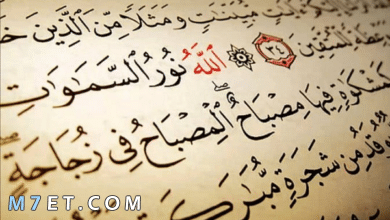 مُّبَيِّنَٰتٍ وَمَثَلًا مِّنَ ٱلَّذِينَ
لِّلْمُتَّقِينَ ٣٤ ۞ ٱللَّهُ نُورُ ٱلسَّمَٰوَٰتِ
كَمِشْكَوٰةٍ فِيهَا مِصْبَاحٌ ٱلْمِصْبَاحُ فِى زُجَاجَةٍ
مِن شَجَرَةٍ مُّبَٰرَكَةٍ
M7ET.COM